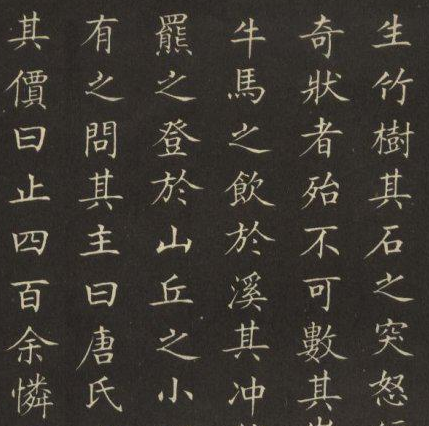 生竹樹其石之突怒
奇狀者殆不可數其
牛馬之飲於溪其冲
羆之登於山丘之小
有之問其主曰唐氏
其價曰止四百余憐